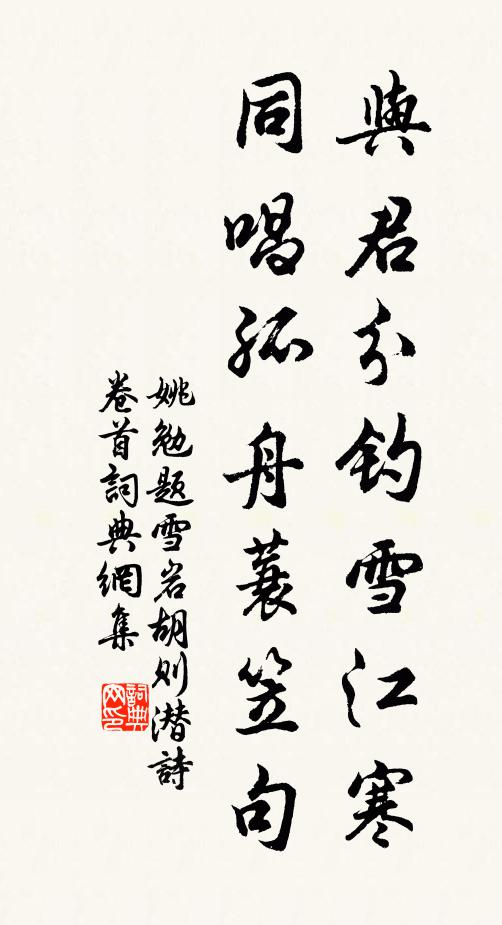 與君分钓雪江寒
同唱孤舟蓑笠句
姚勉题雪岩胡则潜詩
卷首詞典網集
詞典
网印